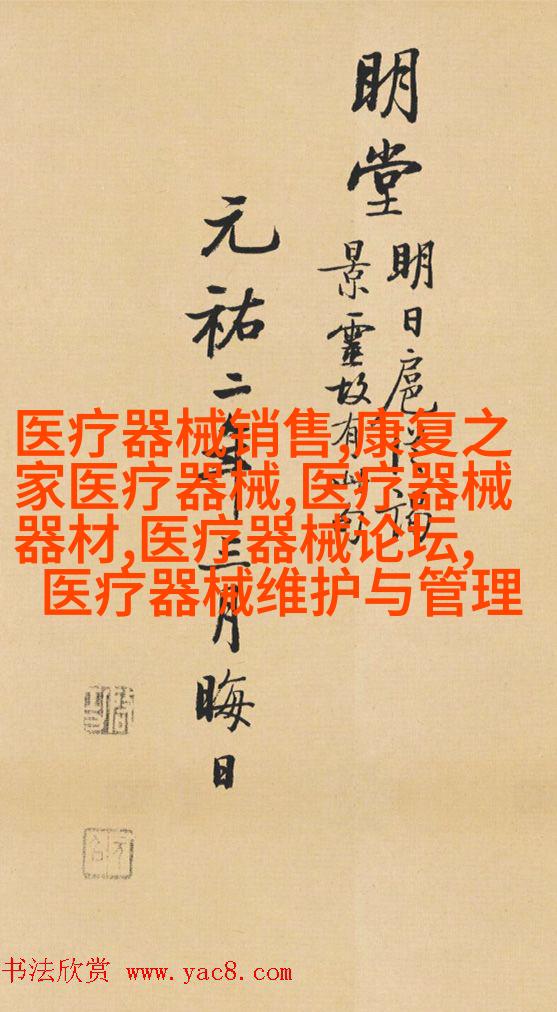 明堂
明日扈謁
景靈故有此
元祐二年三月晦日
医疗器械销售,康复之
家医疗器械,医疗器械
器材,医疗器械论坛,
医疗器械维护与管理
书法欣赏 www.yac8.com